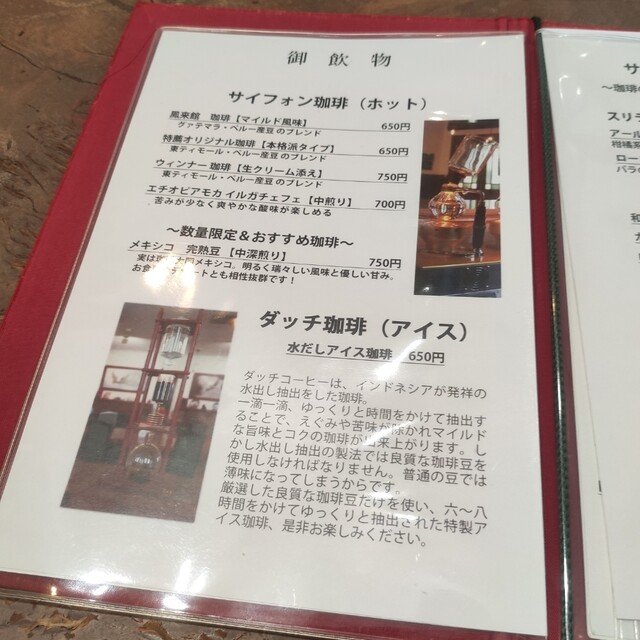 御飲物
サイフォン珈琲（ホット）
風来館 珈琲【マイルド風味】 650円
グァテマラ・ペルー産豆のブレンド
特薦オリジナル珈琲【本格派タイプ】 650円
東ティモール・ペルー産豆のブレンド
ウィンナー珈琲【生クリーム添え】 750円
東ティモール・ペルー産豆のブレンド
エチオピアモカ イルガチェフェ【中煎り】 700円
苦みが少なく爽やかな酸味が楽しめる
～数量限定＆おすすめ珈琲～
メキシコ 完熟豆【中深煎り】 750円
実は珈琲大国メキシコ。明るく瑞々しい風味と優しい甘み。
お食 ートとも相性抜群です！
ダッチ珈琲（アイス）
水だしアイス珈琲 650円
ダッチコーヒーは、インドネシアが発祥の
水出し抽出をした珈琲。
一滴一滴、ゆっくりと時間をかけて抽出す
ることで、えぐみや苦味が除かれマイルド
な旨味とコクの珈琲が出来上がります。し
かし水出し抽出の製法では良質な珈琲豆を
使用しなければなりません。普通の豆では
薄味になってしまうからです。
厳選した良質な珈琲豆だけを使い、六～八
時間をかけてゆっくりと抽出された特製ア
イス珈琲、是非お楽しみください。
サ
～珈琲の
スリラ
アール
柑橘系
ロー
バラの